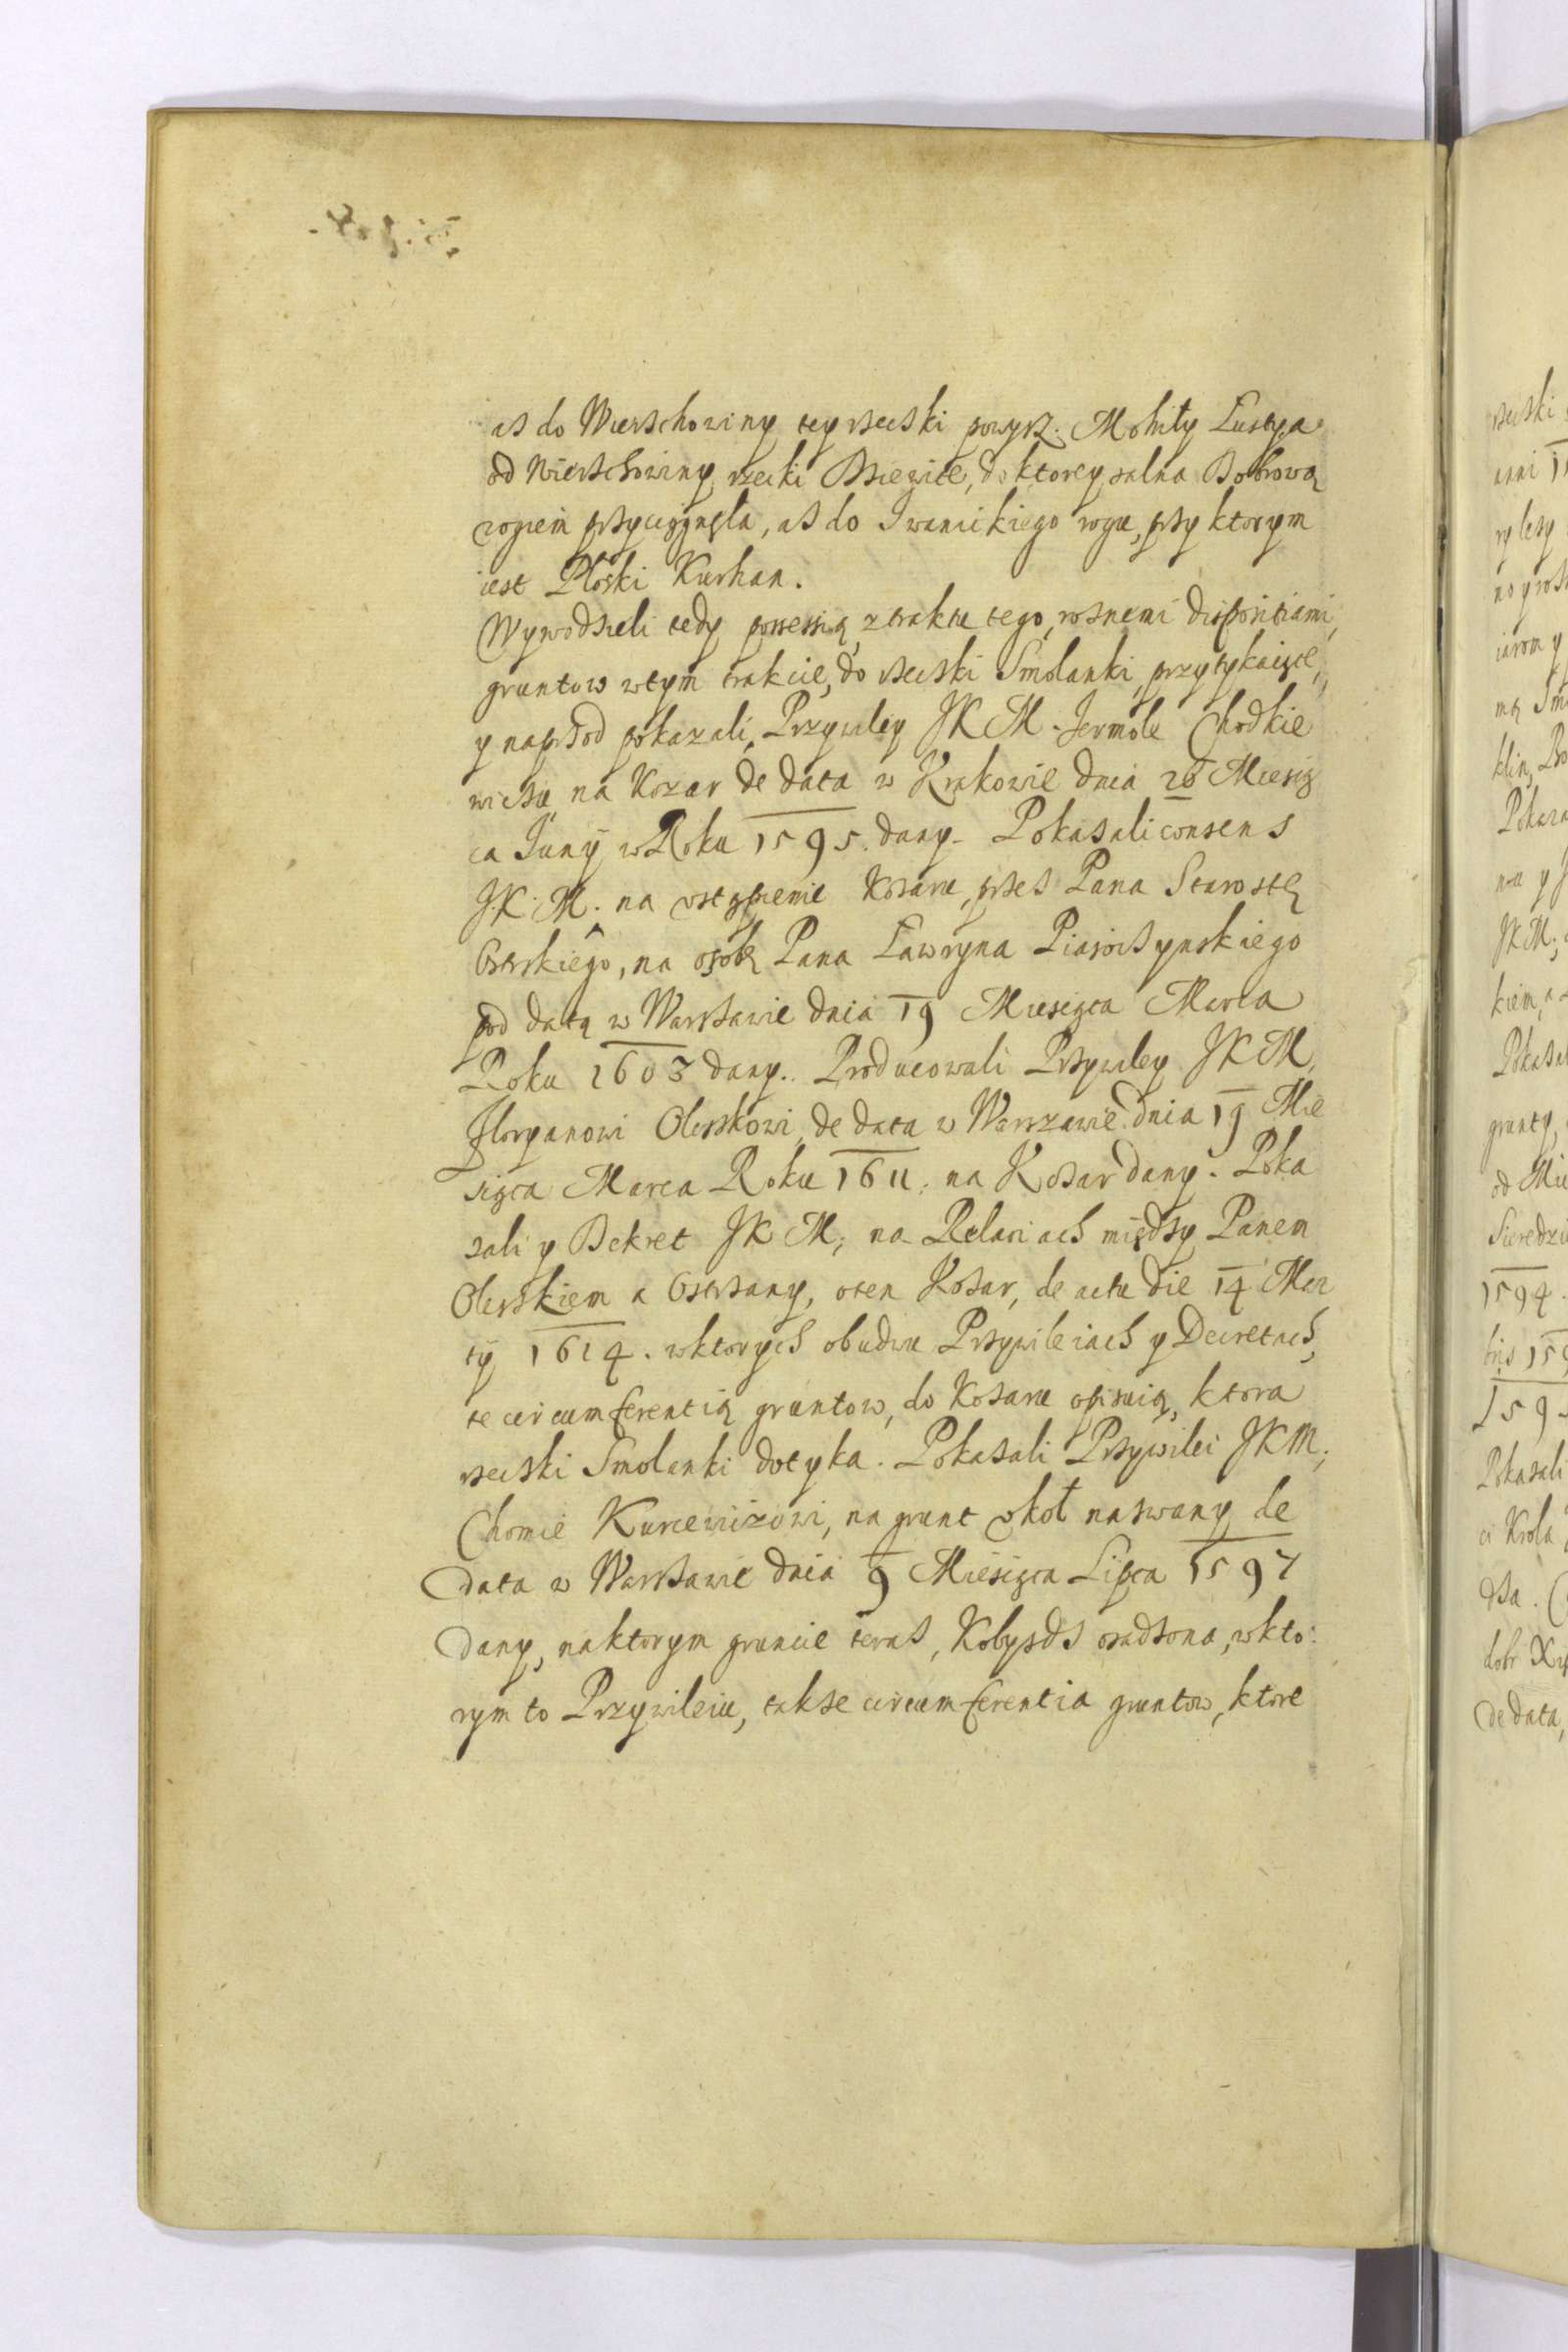 aż do Wierzchowiny tey rzeczki powysz. Mohiły Łustya
od Wierzchowiny rzeczki Bziewicz, do ktorey zalna Dobrowa
rogiem przyciągnęła, aż do Iwanickiego rogu, przy ktorym
iest Płoski Kurhan.
Wywodzieli tedy possessią z traktu tego, roznemi dispositiami,
gruntow w tym trakcie, do rzeczki Smolanki, przytykaiące,
y naprzod pokazali, Przywiley JKM. Jermole Chodkie
wiczu na Kozar de data w Krakowie dnia 26 Miesią
ca Juny w Roku 1595. dany. Pokazali consens
J.K.M. na ustąpienie Kozaru, przes Pana Starostę
Ostrskiego, na osobę Pana Ławryna Piasoczynskiego
pod datą w Warszawie dnia 19 Miesiąca Marca
Roku 1603 dany. Producowali Przywiley JKM,
Floryanowi Oleszkowi, de data w Warszawie dnia 19 Mie
siąca Marca Roku 1611. na Kozar dany. Poka
zali y Dekret JKM; na Relaciach między Panem
Oleszkiem a Ostrzany, oten Kozar, de actu die 14 Mar
tÿ 1614. w ktorych obudwu Przywileiach y Decretach,
te circumferentią gruntow, do Kozaru opisuią, ktora
rzeczki Smolanki dotyka. Pokazali Przywilei JKM;
Chomie Kurcewiczowi, na grunt okoł nazwany de
data w Warszawie dnia 9 Miesiąca Lipca 1597
dany, na ktorym gruncie teraz, Kobyzdz osadzona, w kto:
rym to Przywileiu, takze circumferentia gruntow, ktore